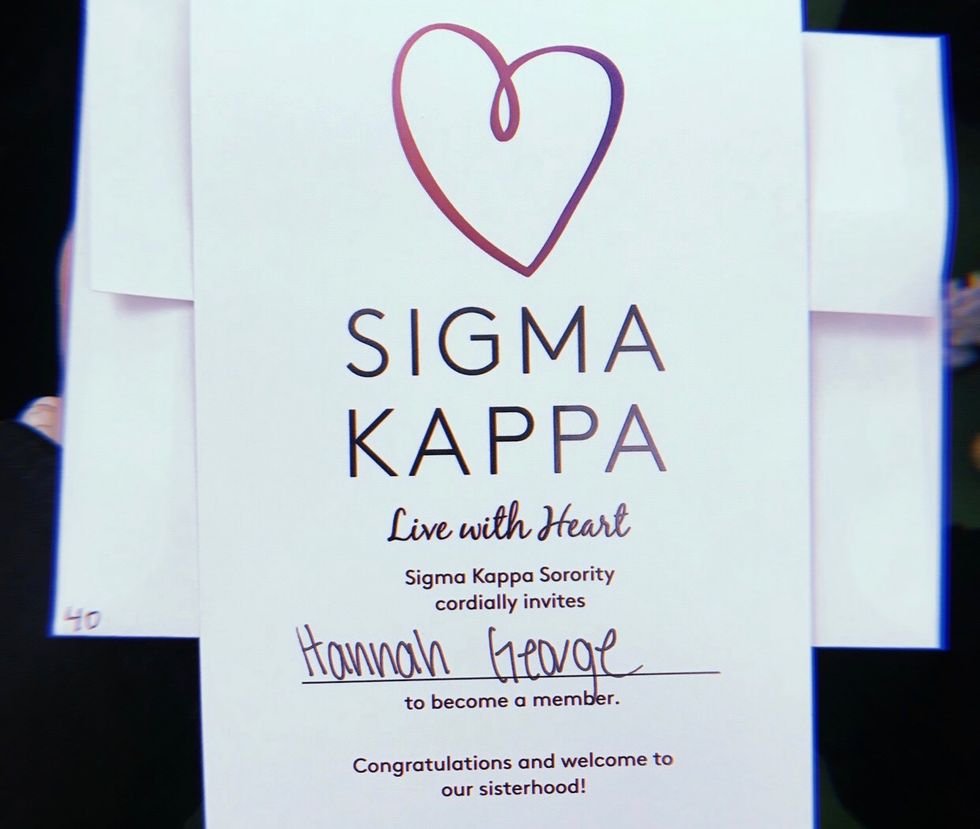 SIGMA
KAPPA
Live with Heart
Sigma Kappa Sorority
cordially invites
Hannah George
to become a member.
Congratulations and welcome to
our sisterhood!
40